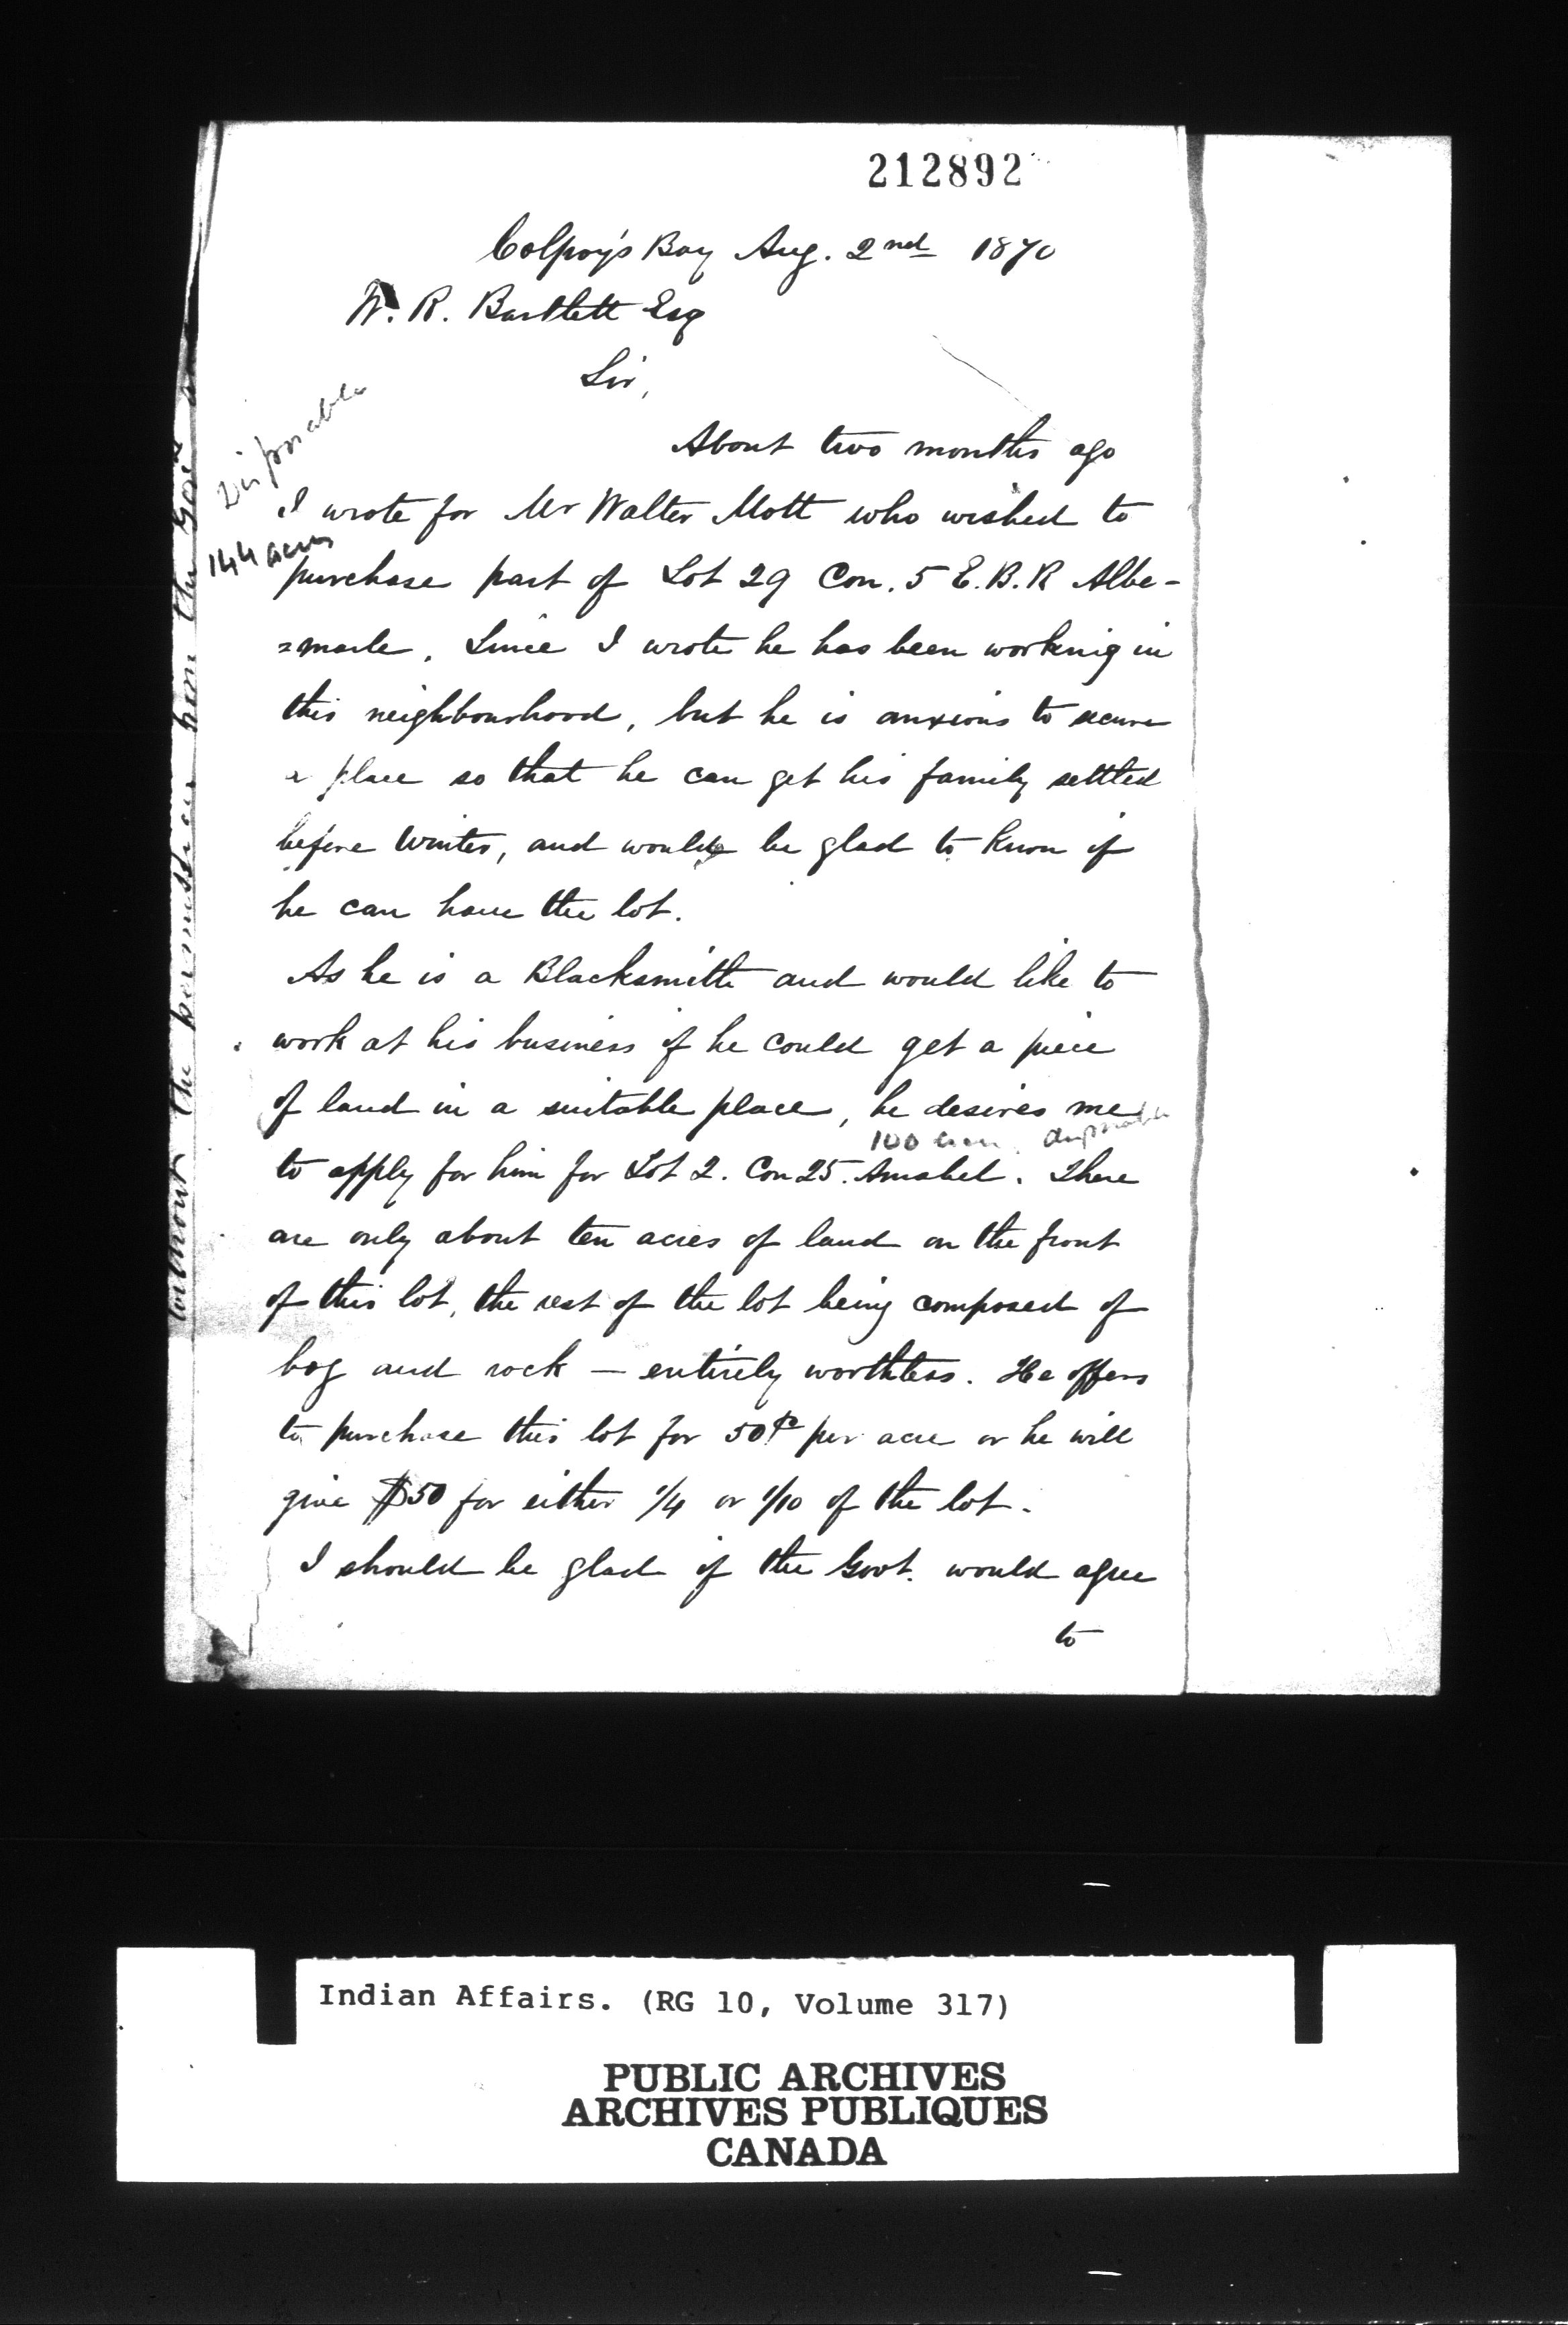 212892
Colpoy's Bay Aug. 2nd 1870
W. R. Bartlett Esq
Sir,
Disposable
About two months ago
I wrote for Mr Walter Mott who wished to
144 acres
purchase part of Lot 29 Con. 5 E.B.R Albe-
=marle. Since I wrote he has been working in
this neighbourhood, but he is anxious to secure
a place so that he can get his family settled
before Winter, and would be glad to know if
he can have the lot.
As he is a Blacksmith and would like to
work at his business if he could get a piece
of land in a suitable place, he desires me
100 acres disposable
to apply for him for Lot 2. Con 25. Amabel. There
are only about ten acres of land on the front
of this lot, the rest of the lot being composed of
bog and rock — entirely worthless. He offers
to purchase this lot for 50 per acre or he will
give $50 for either 1/4 or 1/10 of the lot.
I should be glad if the Govt. would agree
to
without the permission from the Govt
Indian Affairs. (RG 10, Volume 317)
PUBLIC ARCHIVES
ARCHIVES PUBLIQUES
CANADA